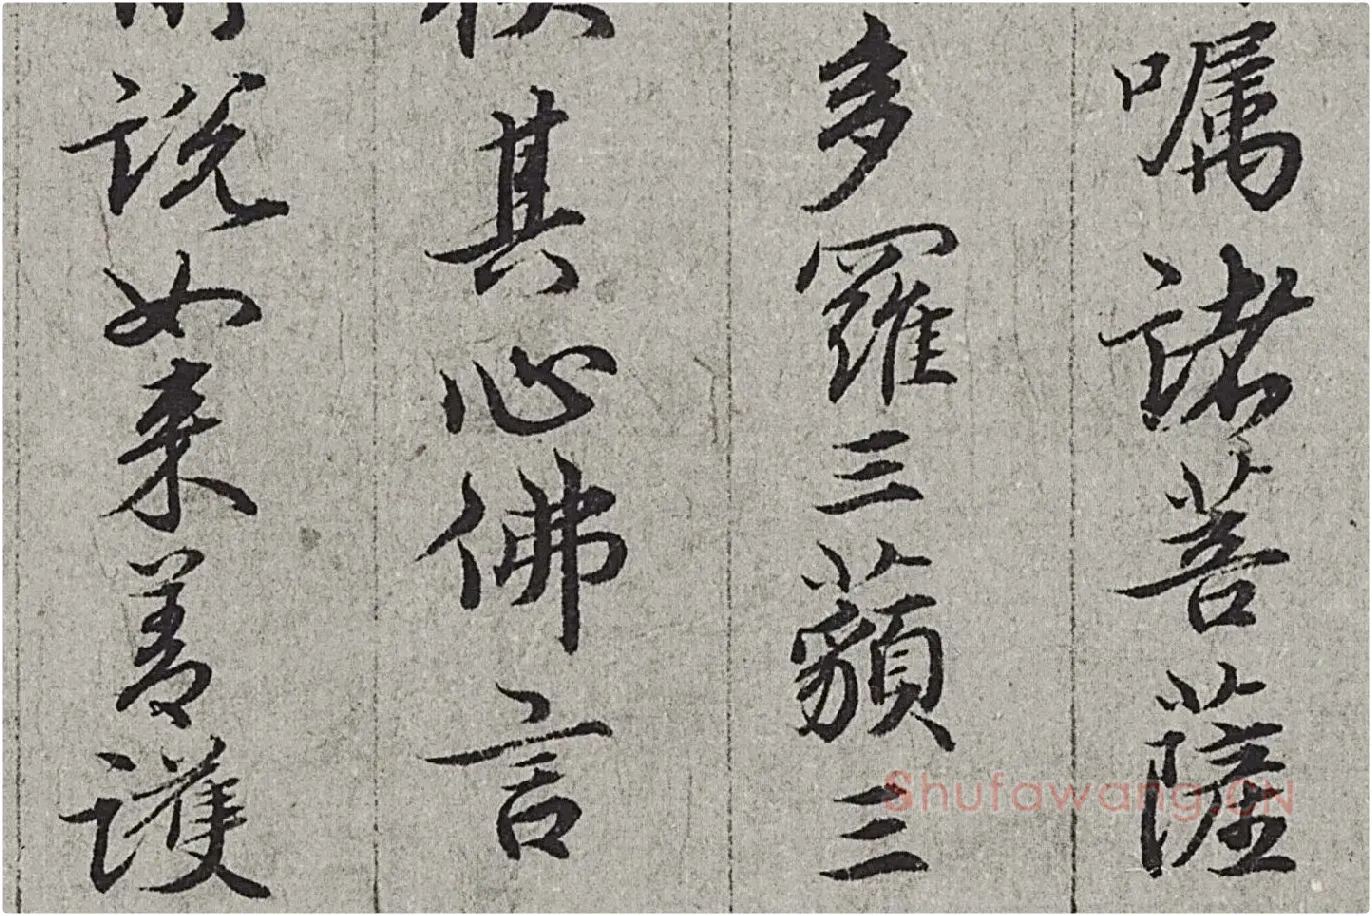 嘱諸菩薩
多羅三藐三
其心佛言
説如来善護
Shufawang.CN